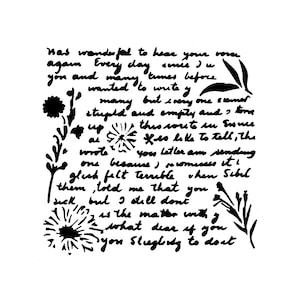 was wonderful to hear your voice
again Every day since I
you and many times before
wanted to write y
many but every one
stupid and empty and I tore
up this wrote in
as like to tell, the
wrote you letter am sending
one because, promises it i
felt terrible when
them, told me that you
sick, but I still dont
is the matter with y
what dear if you
you to do it